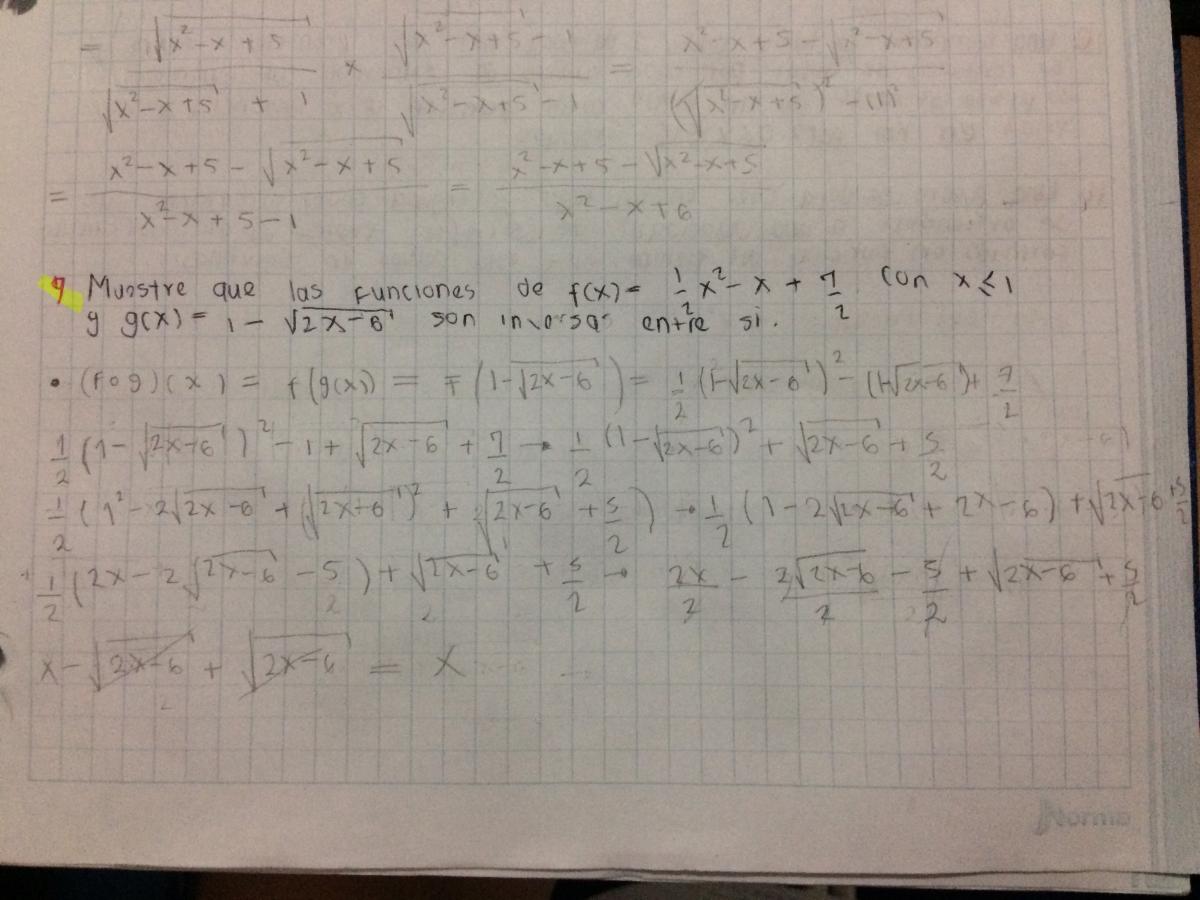 = √(x²-x+5) / (√(x²-x+5) + 1) × (√(x²-x+5) - 1) / (√(x²-x+5) - 1) = (x²-x+5 - √(x²-x+5)) / ((√(x²-x+5))² - (1)²)
= (x²-x+5 - √(x²-x+5)) / (x²-x+5-1) = (x²-x+5 - √(x²-x+5)) / (x²-x+6)
9 Muestre que las funciones de f(x) = 1/2 x² - x + 7/2 con x ≤ 1
y g(x) = 1 - √(2x-6) son inversas entre si.
• (fog)(x) = f(g(x)) = F(1-√(2x-6)) = 1/2 (1-√(2x-6))² - (1-√(2x-6)) + 7/2
1/2 (1 - √(2x-6))² - 1 + √(2x-6) + 7/2 → 1/2 (1-√(2x-6))² + √(2x-6) + 5/2
1/2 (1² - 2√(2x-6) + (√(2x+6))² + √(2x-6) + 5/2) → 1/2 (1-2√(2x-6) + 2x-6) + √(2x-6) + 5/2
1/2 (2x - 2√(2x-6) - 5) + √(2x-6) + 5/2 → 2x/2 - 2√(2x-6)/2 - 5/2 + √(2x-6) + 5/2
x - √(2x-6) + √(2x-6) = x
Norma